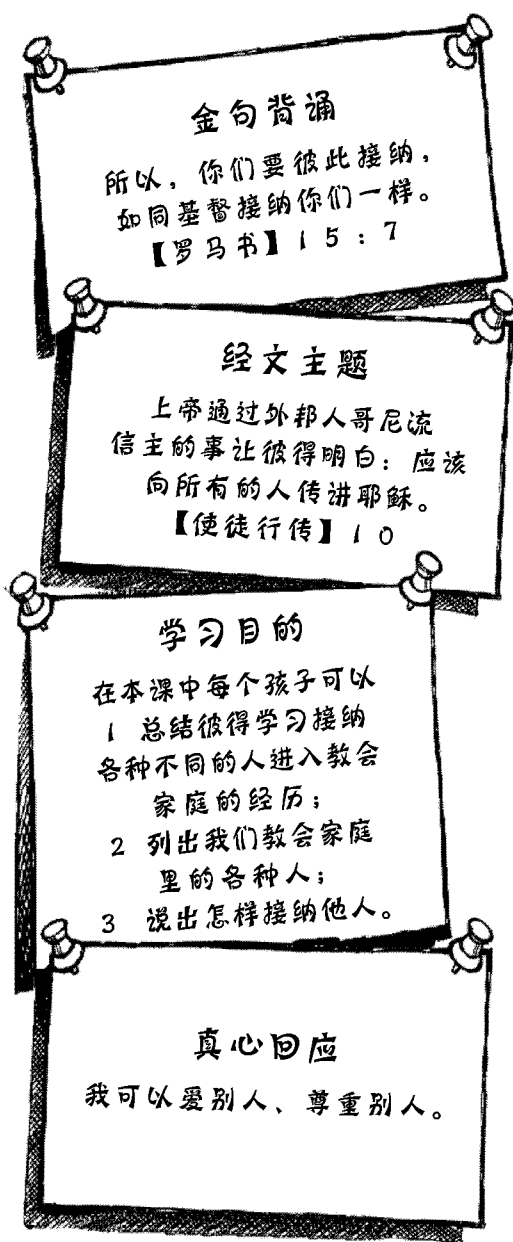 金句背诵
所以，你们要彼此接纳，
如同基督接纳你们一样。
【罗马书】15:7
经文主题
上帝通过外邦人哥尼流
信主的事让彼得明白：应该
向所有的人传讲耶稣。
【使徒行传】10
学习目的
在本课中每个孩子可以
1 总结彼得学习接纳
各种不同的人进入教会
家庭的经历；
2 列出我们教会家庭
里的各种人；
3 说出怎样接纳他人。
真心回应
我可以爱别人、尊重别人。